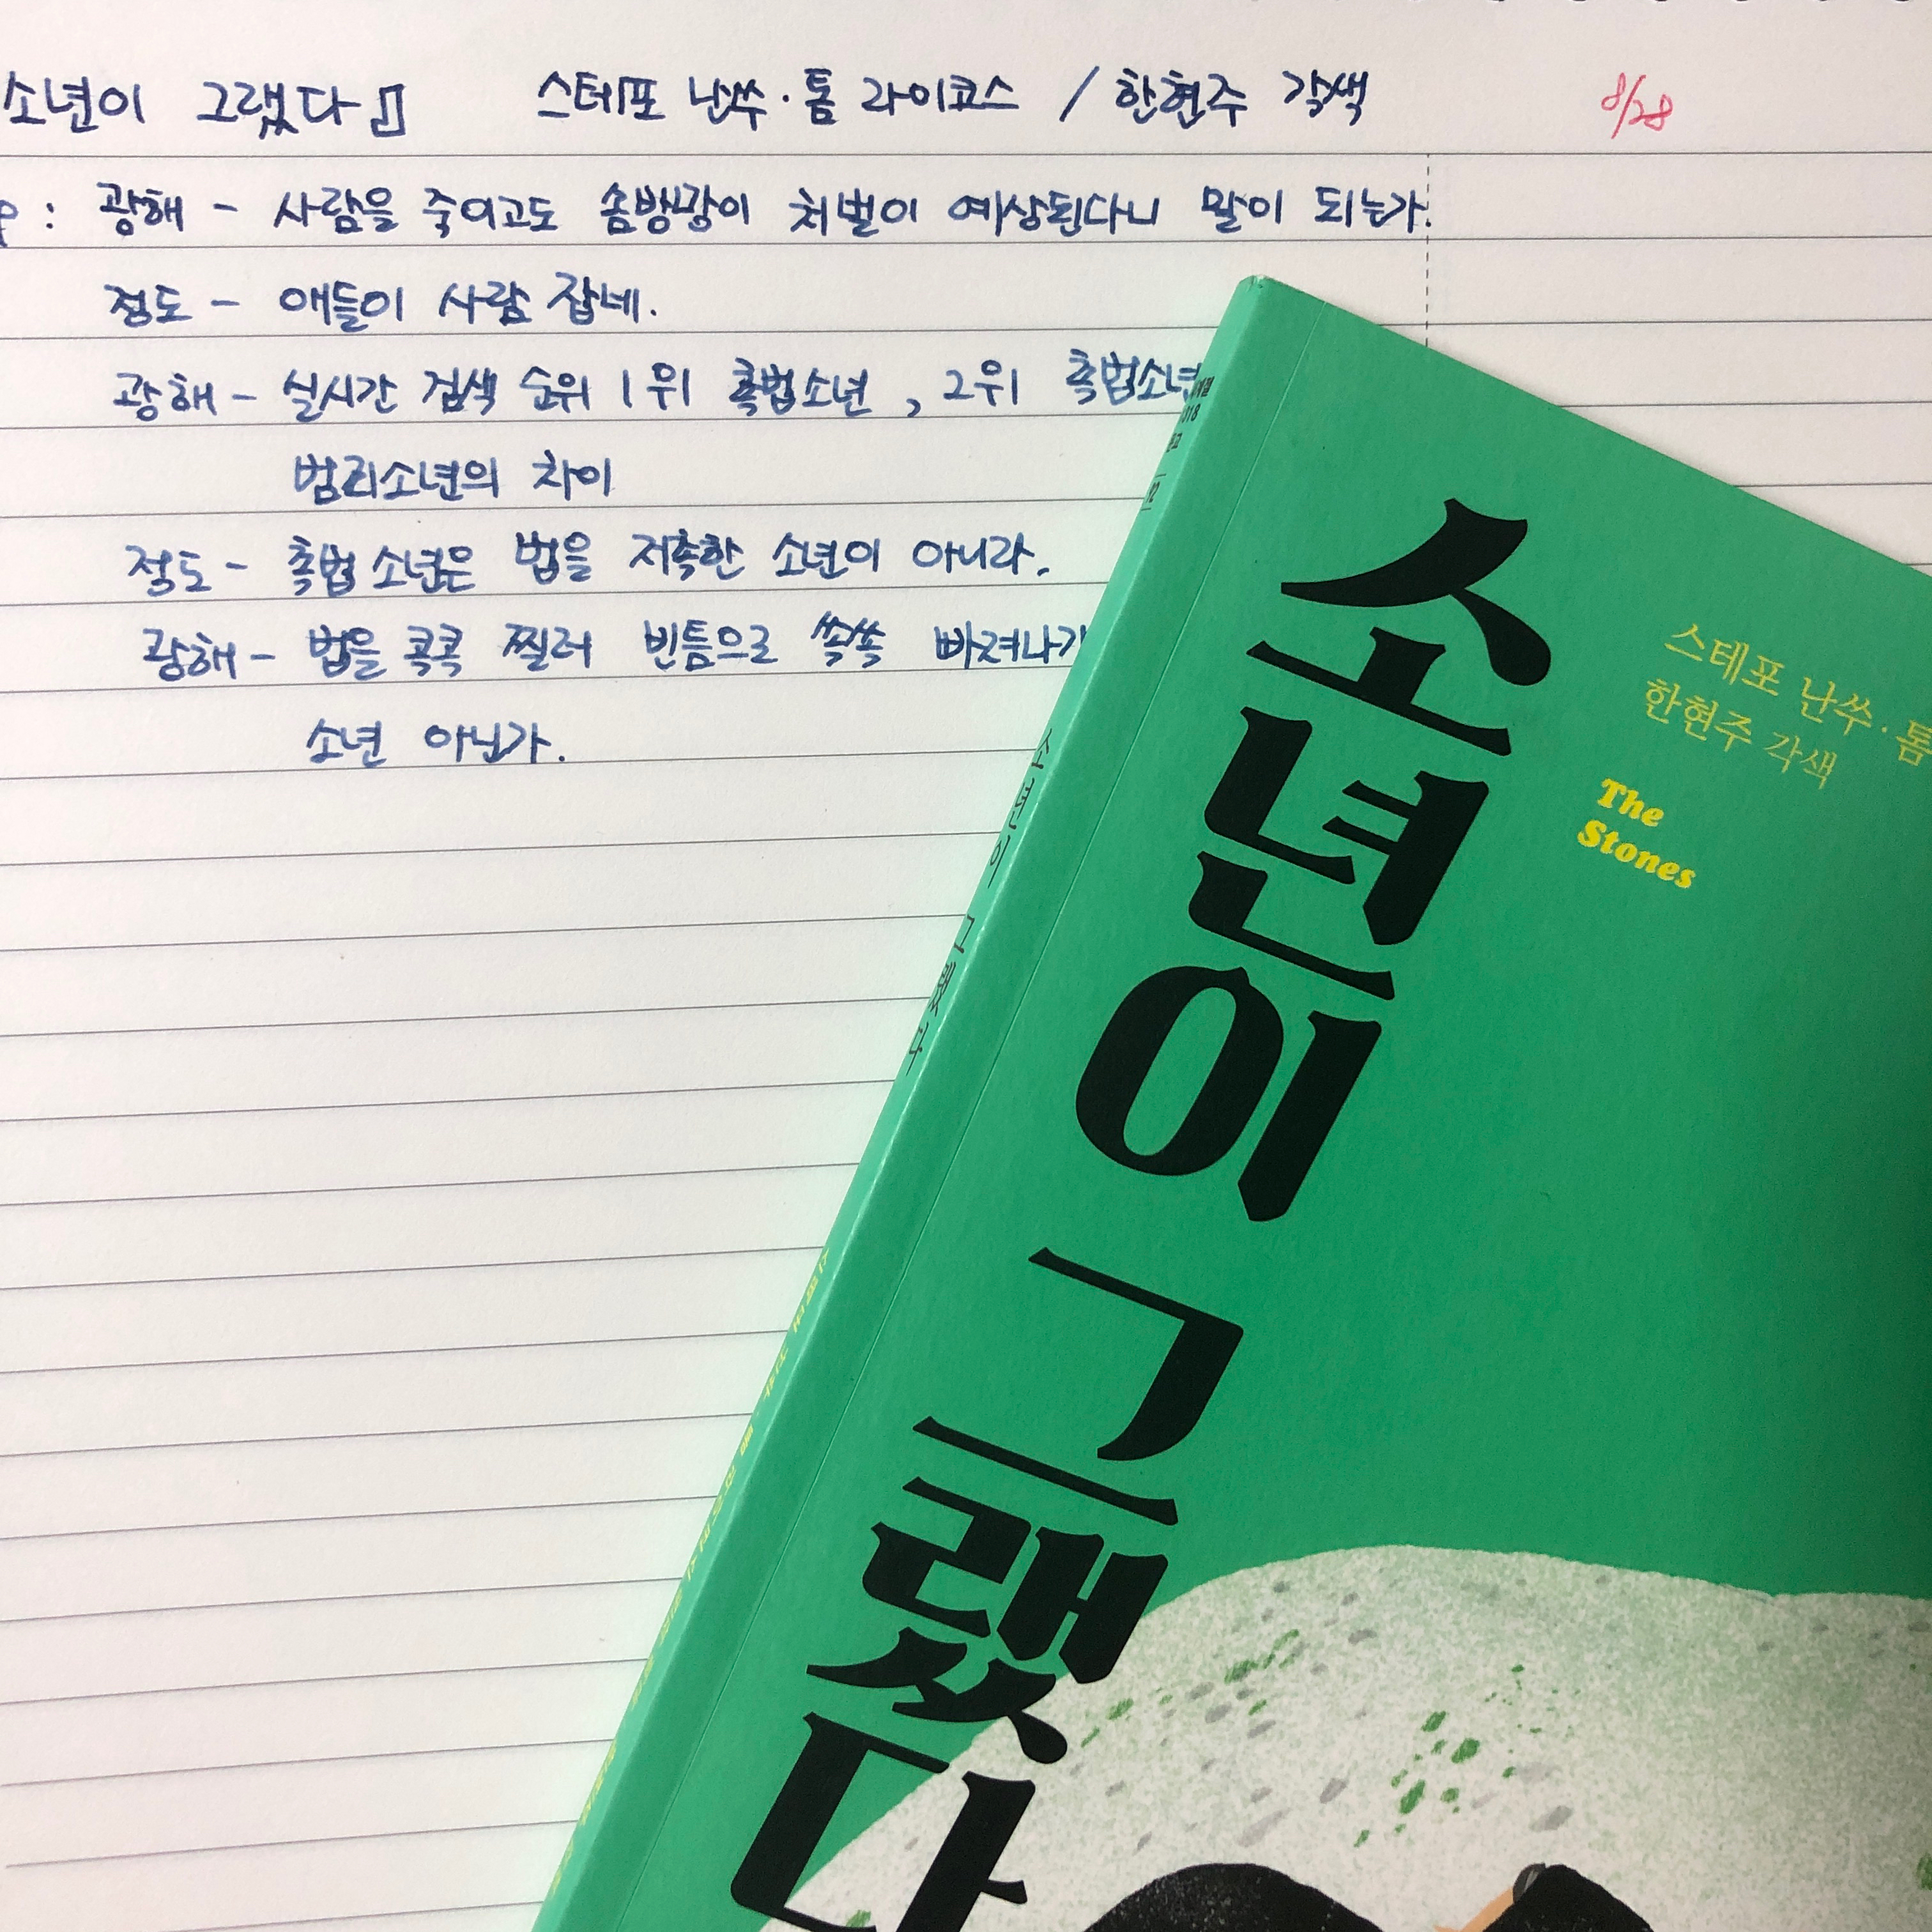 소년이 그랬다』 스테포 난쓰·톰 라이코스 / 한현주 각색 8/28
광해 - 사람을 죽이고도 솜방망이 처벌이 예상된다니 말이 되는가.
정도 - 애들이 사람 잡네.
광해 - 실시간 검색 순위 1위 촉법소년, 2위 촉법소년
범죄소년의 차이
정도 - 촉법소년은 법을 저촉한 소년이 아니라.
광해 - 법을 콕콕 찔러 빈틈으로 쏙쏙 빠져나가
소년 아닌가.
소년이 그랬다
스테포 난쓰·톰
한현주 각색
The
Stones
소년이 그랬다